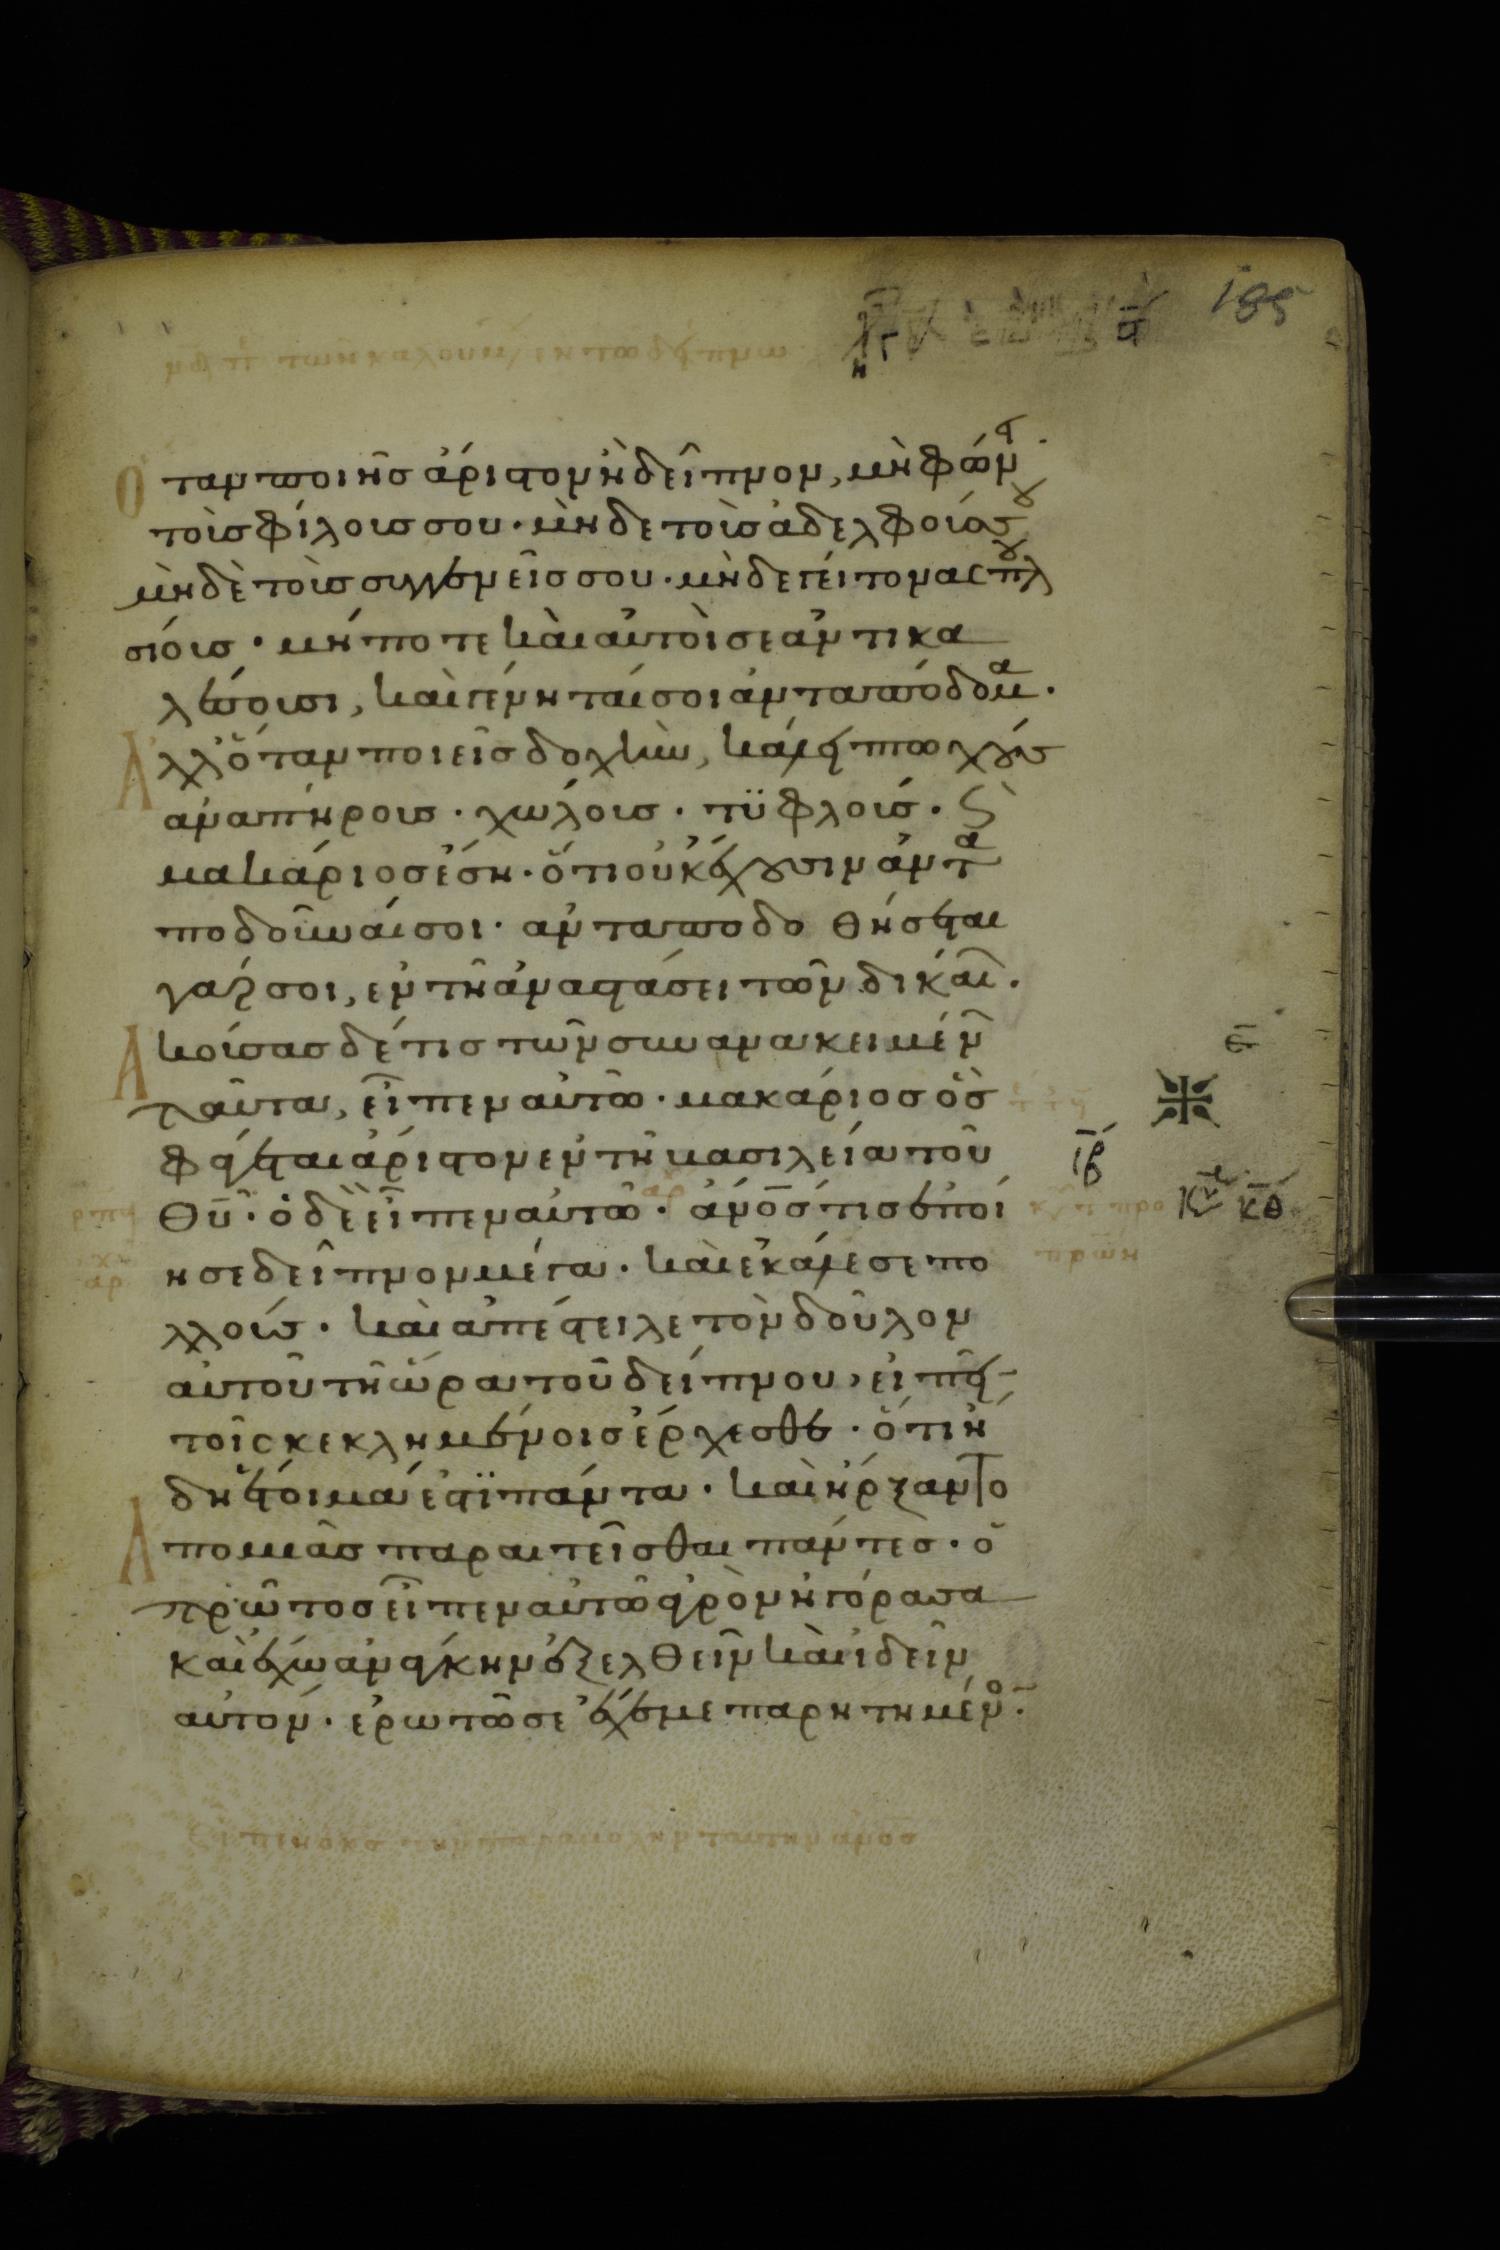 185
Ὅταν ποιῆς ἄριστον ἢ δεῖπνον, μὴ φών
τοὺς φίλους σου · μὴ δὲ τοὺς ἀδελφούς
μὴ δὲ τοὺς συγγενεῖς σου · μὴ δὲ γείτονας πλ
σίους · μήποτε καὶ αὐτοὶ σε ἀντικα
λέσουσι, καὶ γένηταί σοι ἀνταπόδομα ·
Ἀλλ' ὅταν ποιεῖς δοχὴν, κάλει πτωχούς
ἀναπήρους · χωλούς · τυφλούς · ϛ
μακάριος ἔση · ὅτι οὐκ ἔχουσιν ἀντα
ποδοῦναί σοι · ἀνταποδοθήσεται
γάρ σοι, ἐν τῆ ἀναστάσει τῶν δικαί ·
Ἀκούσας δέ τις τῶν συνανακειμέν
ταῦτα, εἶπεν αὐτῶ · μακάριος ὃς
φάγεται ἄριστον ἐν τῆ βασιλεία τοῦ
θῦ · ὁ δὲ εἶπεν αὐτῶ · ἄνος τις ἐποί
ησε δεῖπνον μέγα · καὶ ἐκάλεσε πο
λλούς · καὶ ἀπέστειλε τὸν δοῦλον
αὐτοῦ τῆ ὥρα τοῦ δείπνου, εἰπεῖ
τοῖς κεκλημένοις ἔρχεσθε · ὅτι ἤ
δη ἕτοιμά ἐστι πάντα · καὶ ἤρξαντο
Ἀπὸ μιᾶς παραιτεῖσθαι πάντες · ὁ
πρῶτος εἶπεν αὐτῶ ἀγρὸν ἠγόρασα
καὶ ἔχω ἀνάγκην ἐξελθεῖν καὶ ἰδεῖν
αὐτόν · ἐρωτῶ σε ἔχε με παρητημένον ·
ε
ιβ
κθ